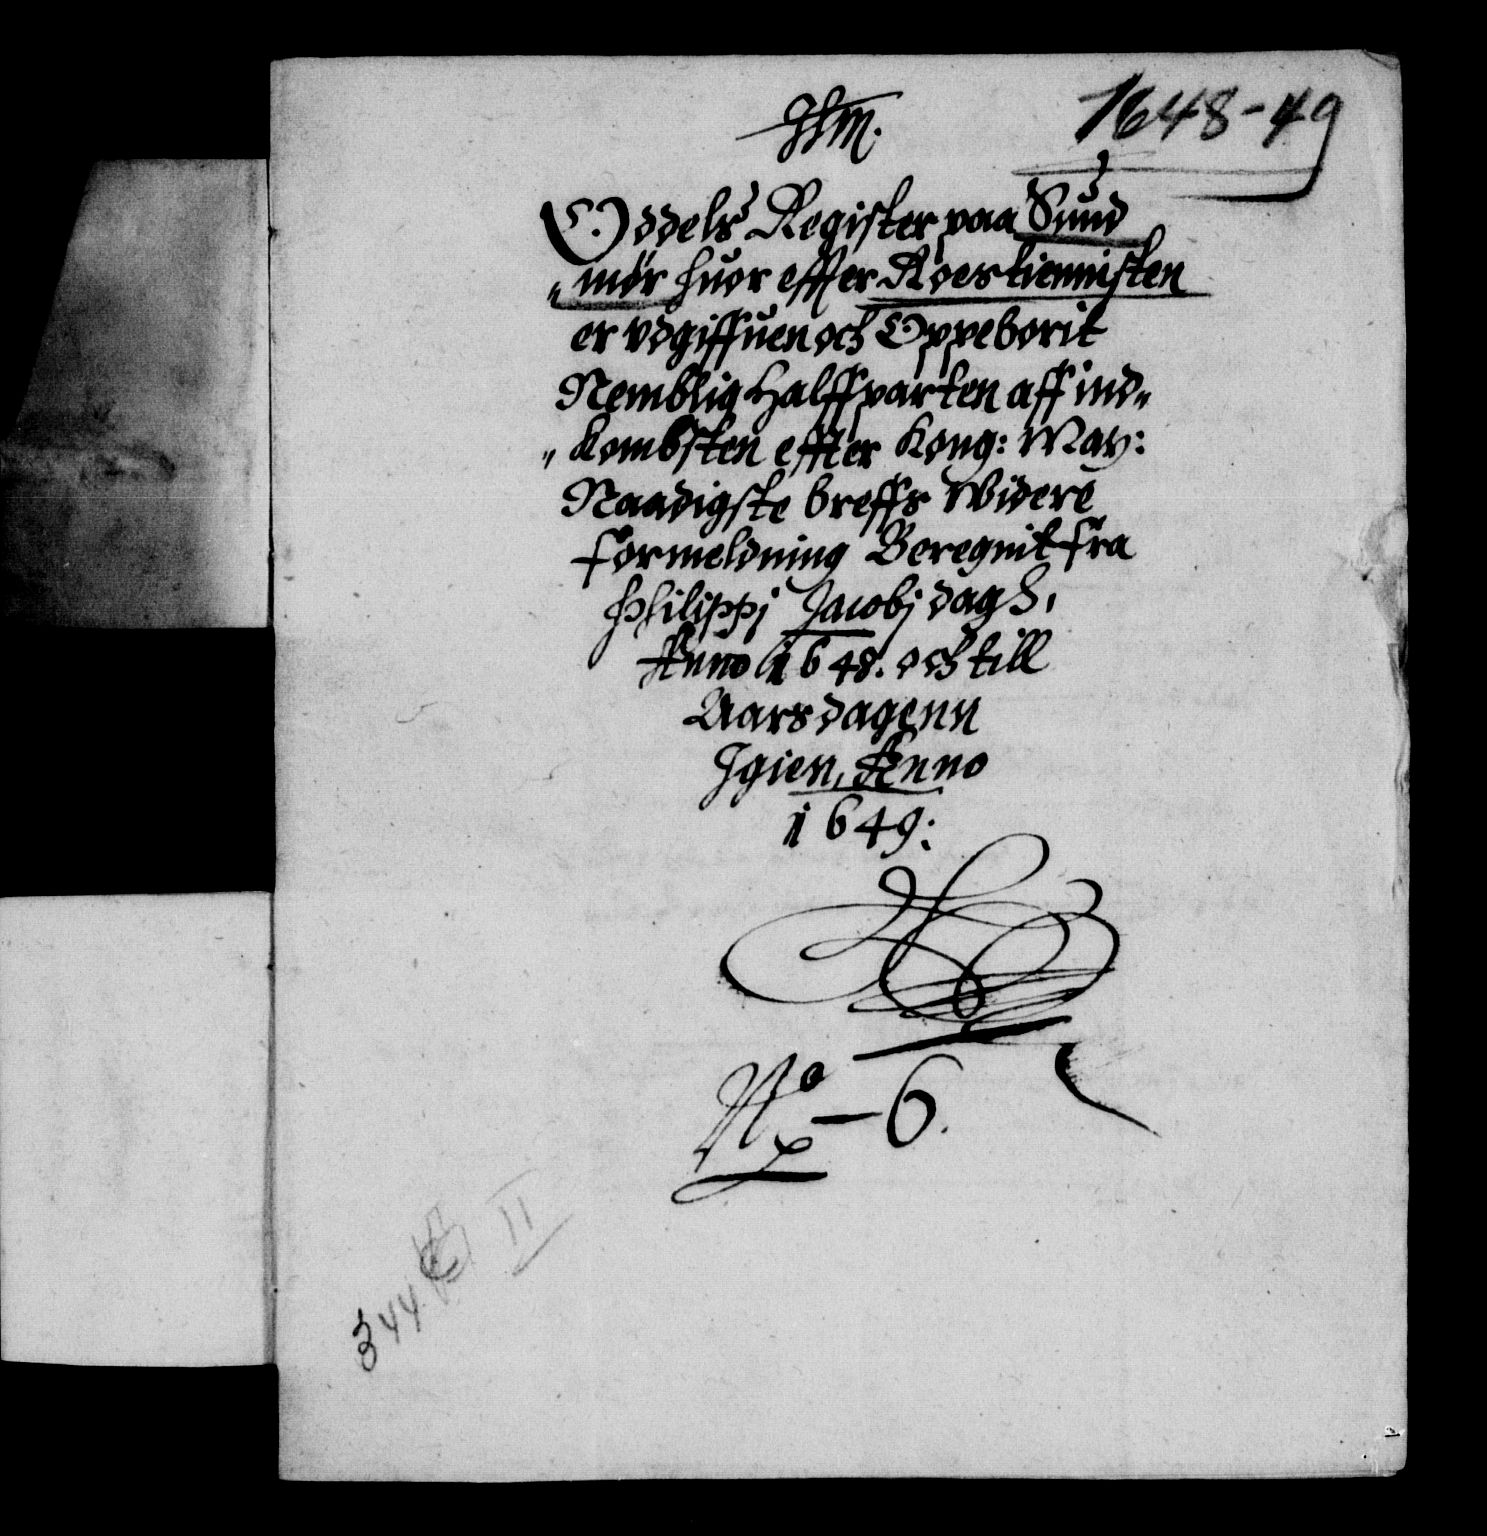 1648-49
Oddels Register paa Sund
„ mör huor effter Roestiennisten
er vdgiffuen och Oppeborit
Nemblig Halffparten aff ind„
„ Kombsten effter Kong: May:
Naadigste breffs Widere
formeldning Beregnit fra
Philippi Jacobj dagh,
Anno 1648. och till
Aarsdagenn
Igien, Anno
1649:
No - 6.
II
344